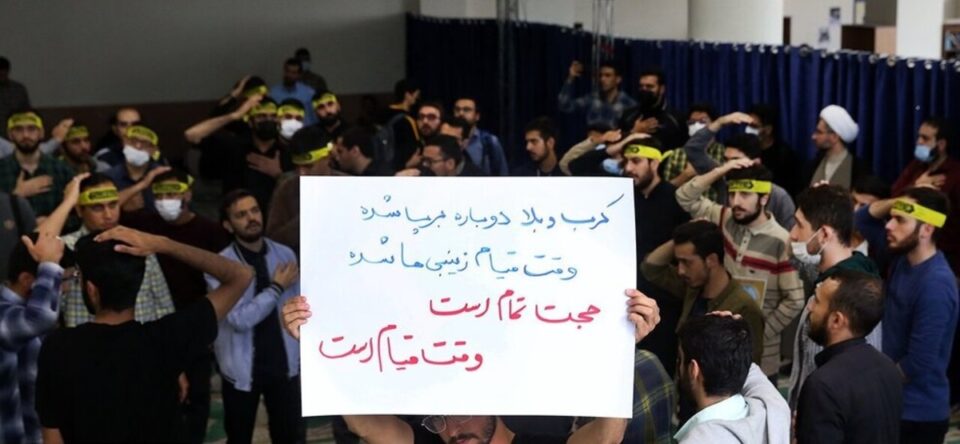 کرب و بلا دوباره برپا شده
وقت قیام زینبی ها شده
حجت تمام است
وقت قیام است